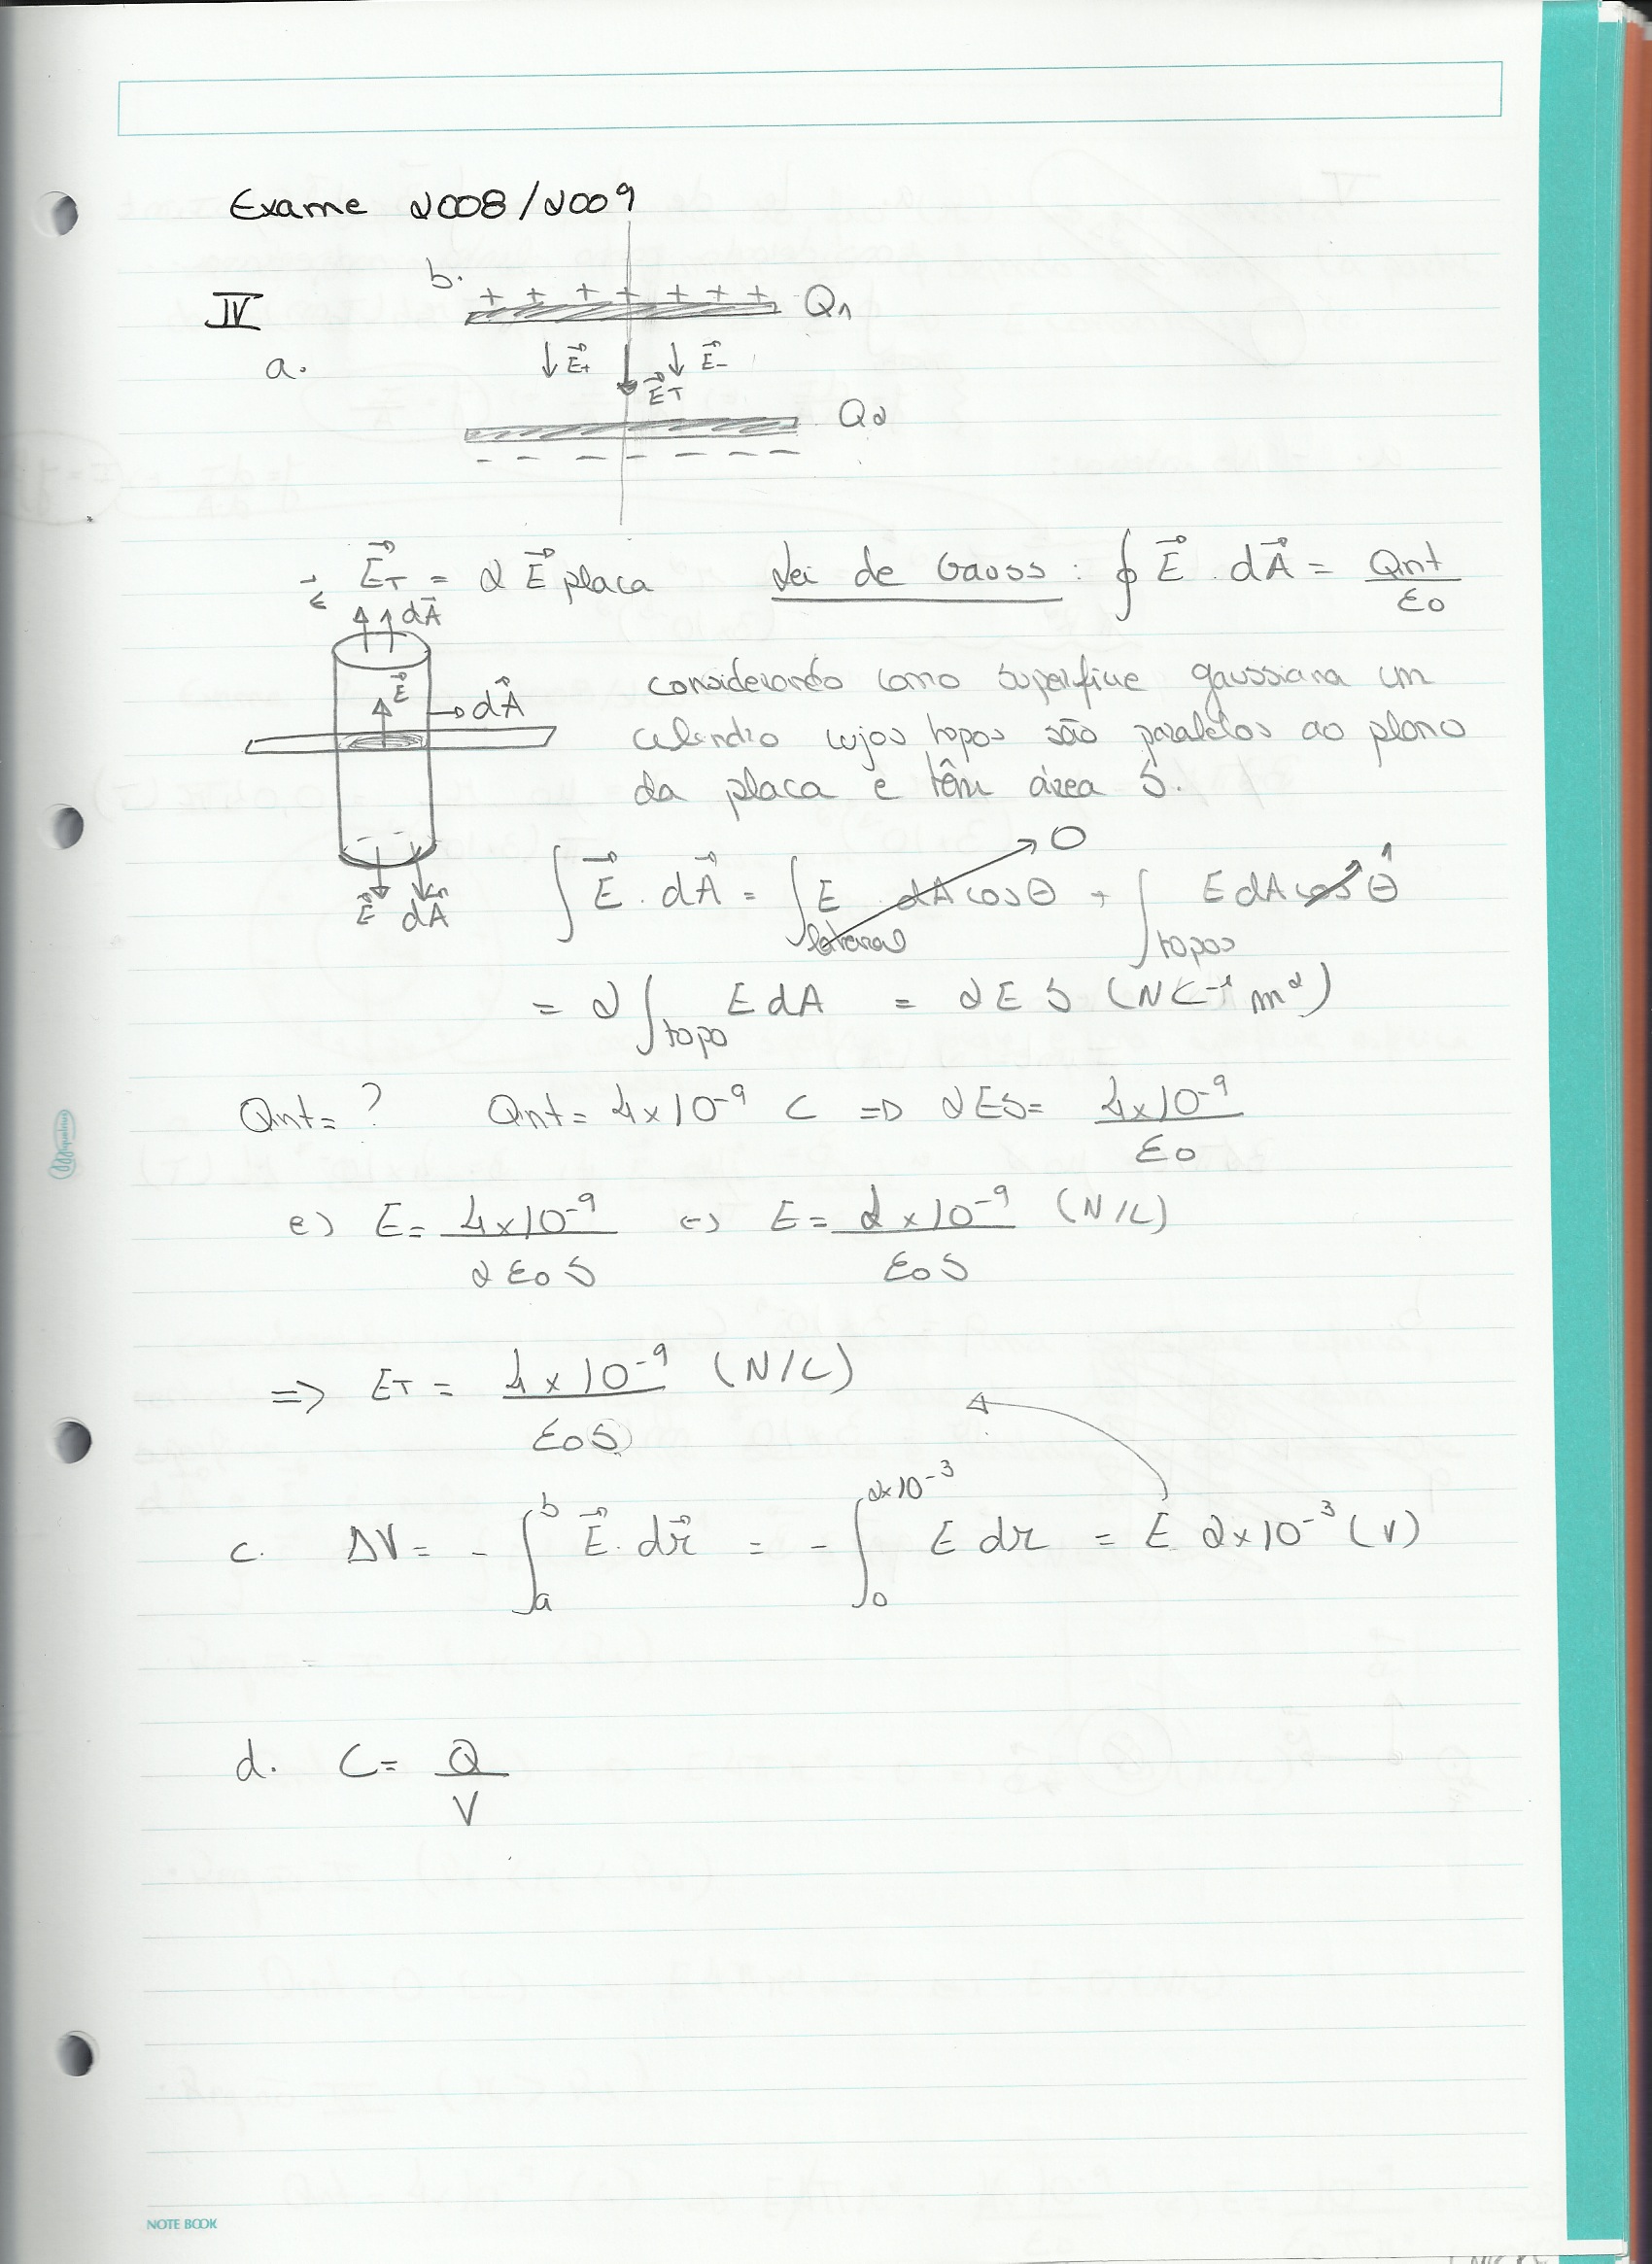 Exame 2008/2009
IV
b.
+ + + + + + + Q1
a.
↓ E⃗+ E⃗T ↓ E⃗-
Q2
- - - - - - -
E⃗T = 2 E⃗ placa Lei de Gauss: ∮ E⃗ . dA⃗ = Qint/ε0
dA⃗
E⃗
dA⃗
considerando como superfície gaussiana um
celindro cujos topos são paralelos ao plano
da placa e têm área S.
E⃗ dA⃗
∫ E⃗ . dA⃗ = ∫lateral E dA cos θ → 0 + ∫topos E dA cos θ → 1
= 2 ∫topo E dA = 2 E S (N C⁻¹ m²)
Qint = ? Qint = 4x10⁻⁹ C => 2ES = 4x10⁻⁹/ε0
e) E = 4x10⁻⁹/2ε0S <=> E = 2x10⁻⁹/ε0S (N/C)
=> ET = 4x10⁻⁹/ε0S (N/C)
c. ΔV = - ∫ₐᵇ E⃗ . dr⃗ = - ∫₀^(2x10⁻³) E dr = E 2x10⁻³ (V)
d. C = Q/V
NOTE BOOK